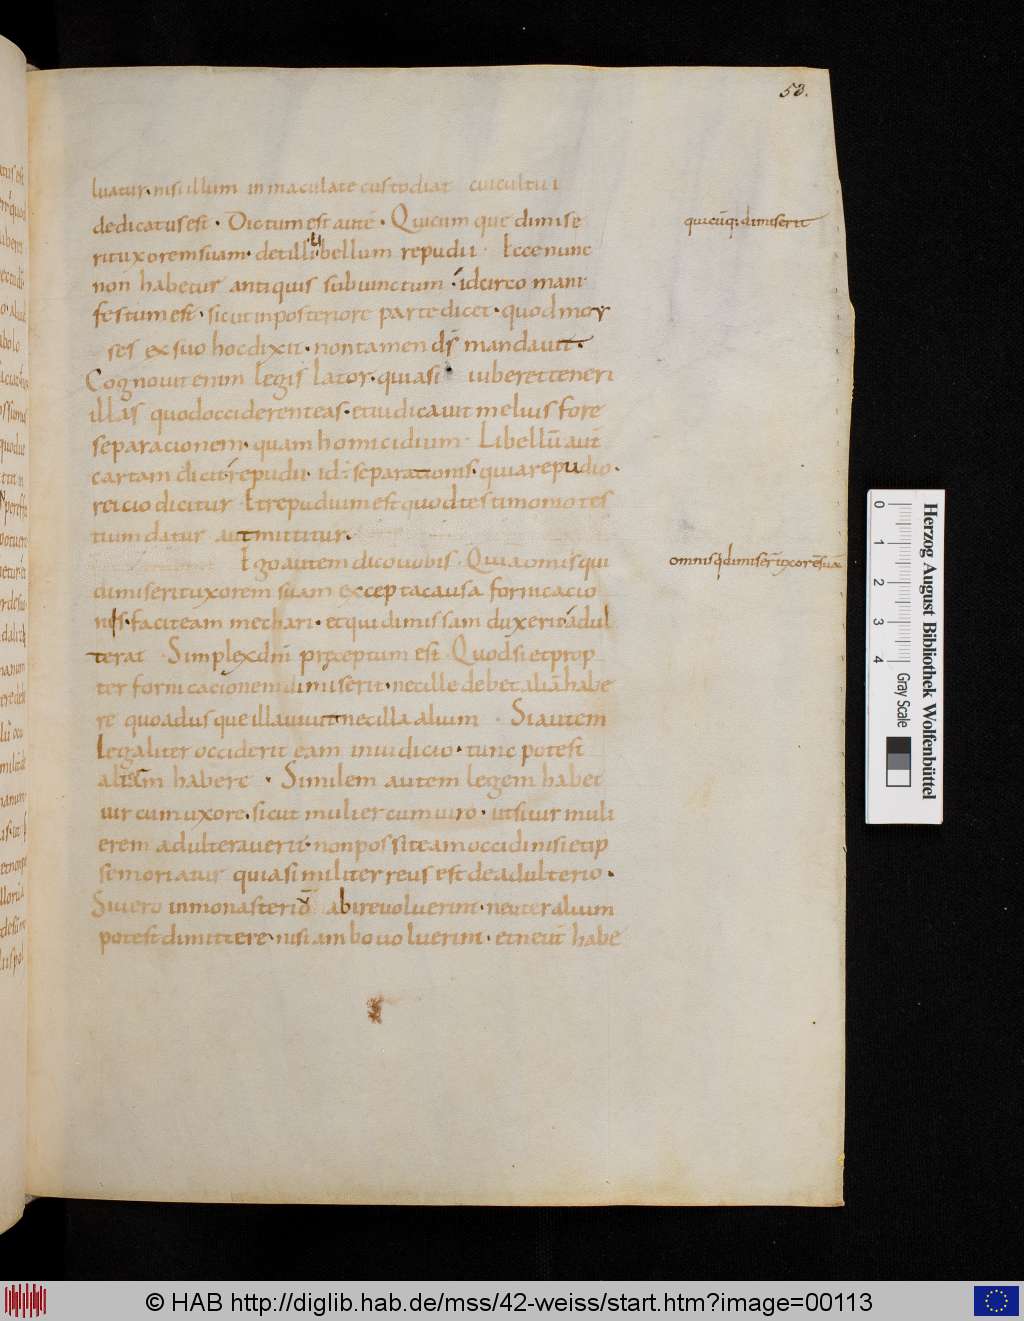 53.
luatur. nisi illum inmaculate custodiat cui cultui
dedicatus est. Dictum est autē. Quicumque dimise
rit uxorem suam. det illi libellum repudii. Ecce nunc
non habetur antiquis subiunctum. idcirco mani
festum est. sicut in posteriore parte dicet. quod moy
ses ex suo hoc dixit. non tamen dī mandauit.
Cognouit enim legis lator. quia si iuberet teneri
illas quod occiderent eas. et iudicauit melius fore
separacionem. quam homicidium. Libellū aut
cartam dicit repudii. id: separationis. quia repudio.
reicio dicitur. Et repudium est quod testimonio tes
tium datur aut mittitur.
Ego autem dico uobis. Quia omis qui
dimiserit uxorem suam excepta causa fornicacio
nis. facit eam mechari. et qui dimissam duxerit adul
terat. Simplex dnī preceptum est. Quod si et prop
ter fornicacionem dimiserit. nec ille debet aliā habe
re quoadusque illa uiuit nec illa alium. Si autem
legaliter occiderit eam in iudicio. tunc potest
aliam habere. Similem autem legem habet
uir cum uxore. sicut mulier cum uiro. ut si uir muli
erem adulterauerit. non possit eam occidi nisi et ip
se moriatur quia similiter reus est de adulterio.
Si uero in monasterio abire uoluerint. neuter alium
potest dimittere. nisi ambo uoluerint. et neut habe
quicūq; dimiserit
omnis q dimiserit uxorē suā
Herzog August Bibliothek Wolfenbüttel
0 1 2 3 4
Gray Scale
© HAB http://diglib.hab.de/mss/42-weiss/start.htm?image=00113